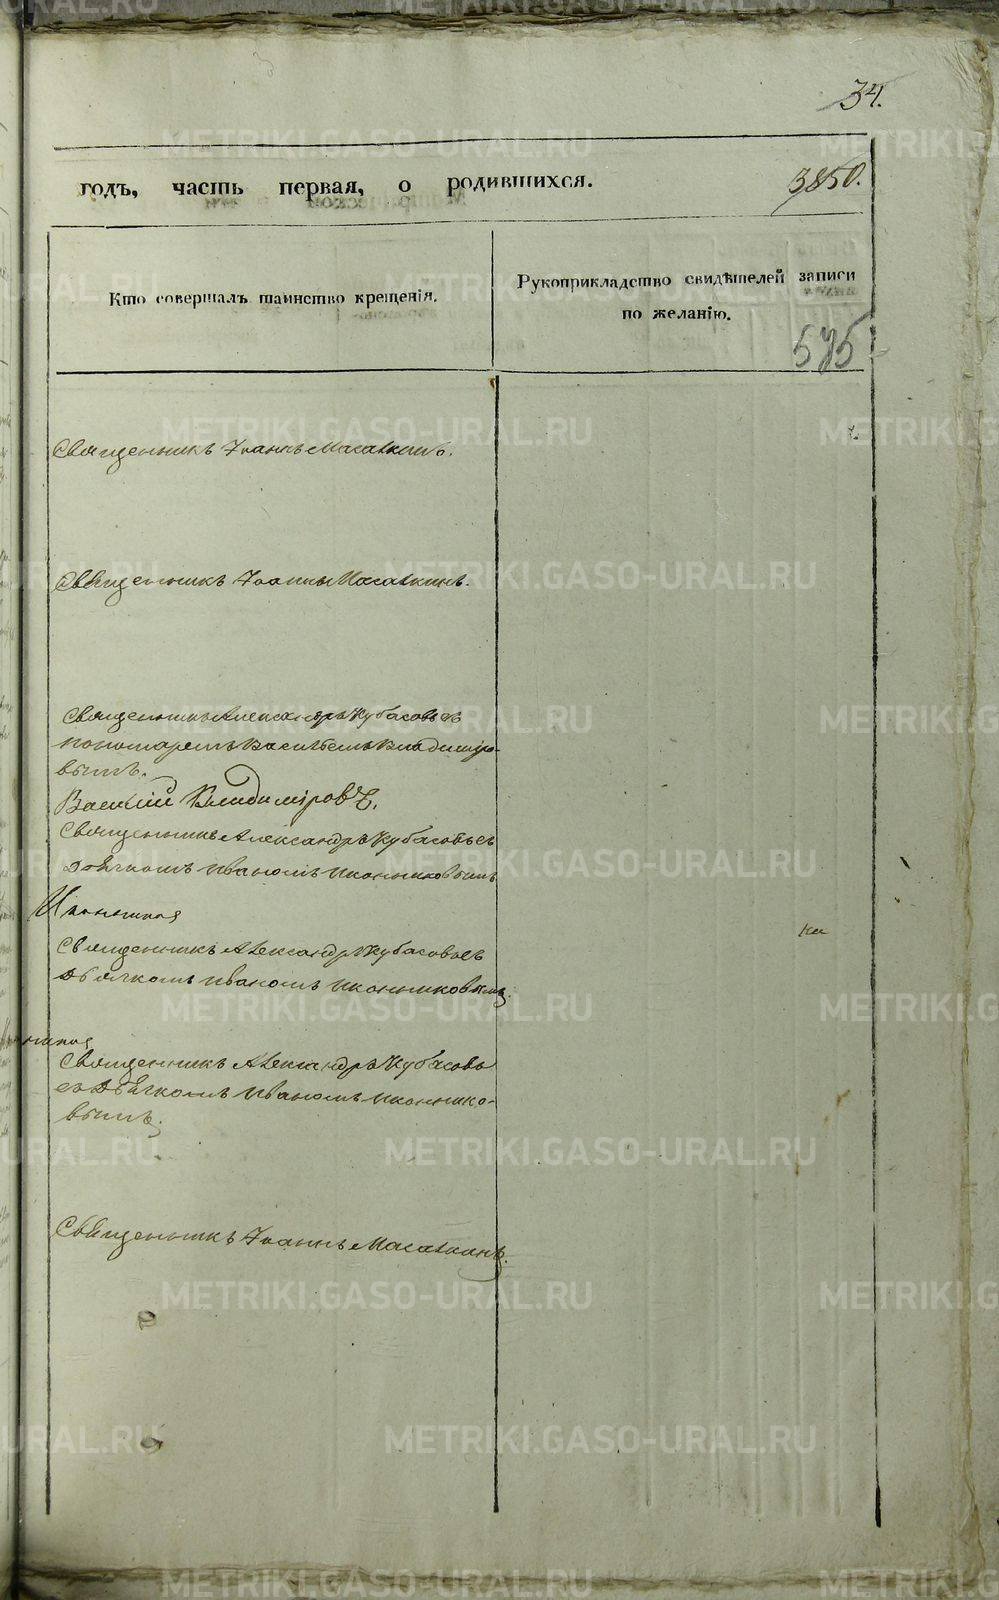 34.
годъ, часть первая, о родившихся.
3850.
Кто совершалъ таинство крещенія.
Рукоприкладство свидѣтелей записи
по желанію.
575
Священникъ Іоаннъ Масалкинъ.
Священникъ Іоаннъ Масалкинъ.
Священникъ Александръ Кубасовъ съ
пономаремъ Василіемъ Владиміро-
вымъ.
Василій Владиміровъ.
Священникъ Александръ Кубасовъ съ
дьячкомъ Иваномъ Иконниковымъ
Священникъ Александръ Кубасовъ съ
дьячкомъ Иваномъ Иконниковымъ.
Священникъ Александръ Кубасовъ
съ дьячкомъ Иваномъ Иконнико-
вымъ.
Священникъ Іоаннъ Масалкинъ.
METRIKI.GASO-URAL.RU